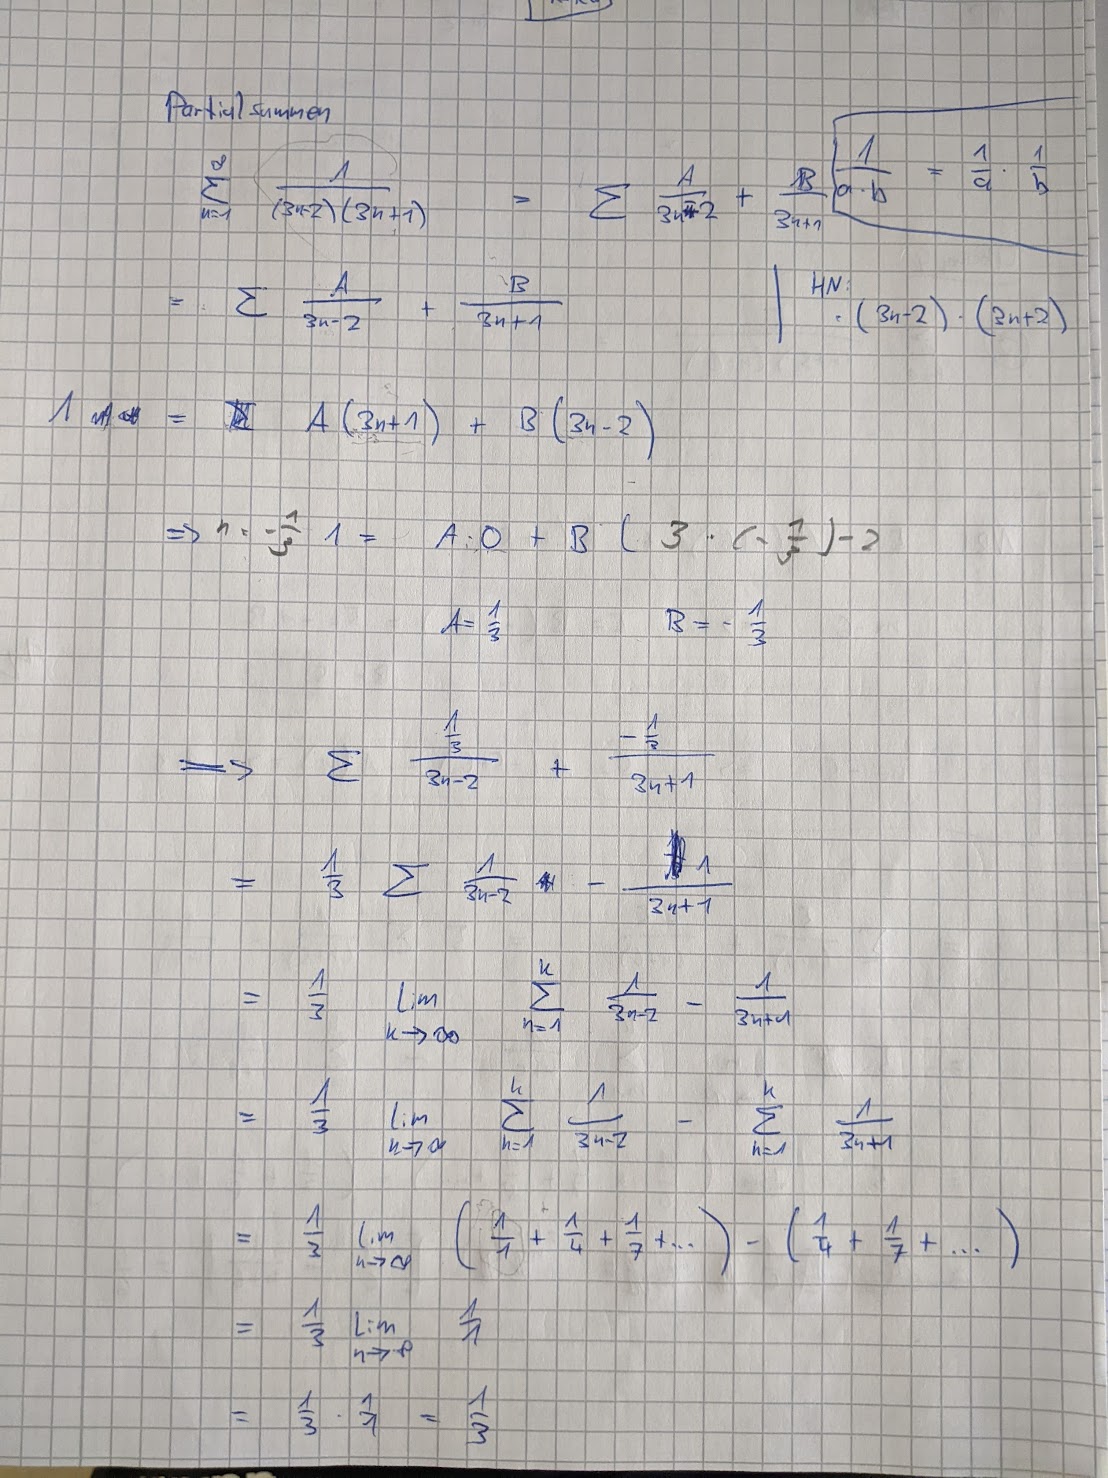 Partialsummen
∞ ∑ n=1 1/((3n-2)(3n+1)) = ∑ A/(3n-2) + B/(3n+1)
1/(a·b) = 1/a · 1/b
= ∑ A/(3n-2) + B/(3n+1) | HN: · (3n-2) · (3n+2)
1 = A(3n+1) + B(3n-2)
=> n = -1/3 1 = A·0 + B ( 3 · (-1/3) - 2
A = 1/3 B = - 1/3
=> ∑ (1/3)/(3n-2) + (-1/3)/(3n+1)
= 1/3 ∑ 1/(3n-2) - 1/(3n+1)
= 1/3 lim k→∞ k ∑ n=1 1/(3n-2) - 1/(3n+1)
= 1/3 lim n→∞ k ∑ n=1 1/(3n-2) - k ∑ n=1 1/(3n+1)
= 1/3 lim n→∞ ( 1/1 + 1/4 + 1/7 + ... ) - ( 1/4 + 1/7 + ... )
= 1/3 lim n→∞ 1/1
= 1/3 · 1/1 = 1/3